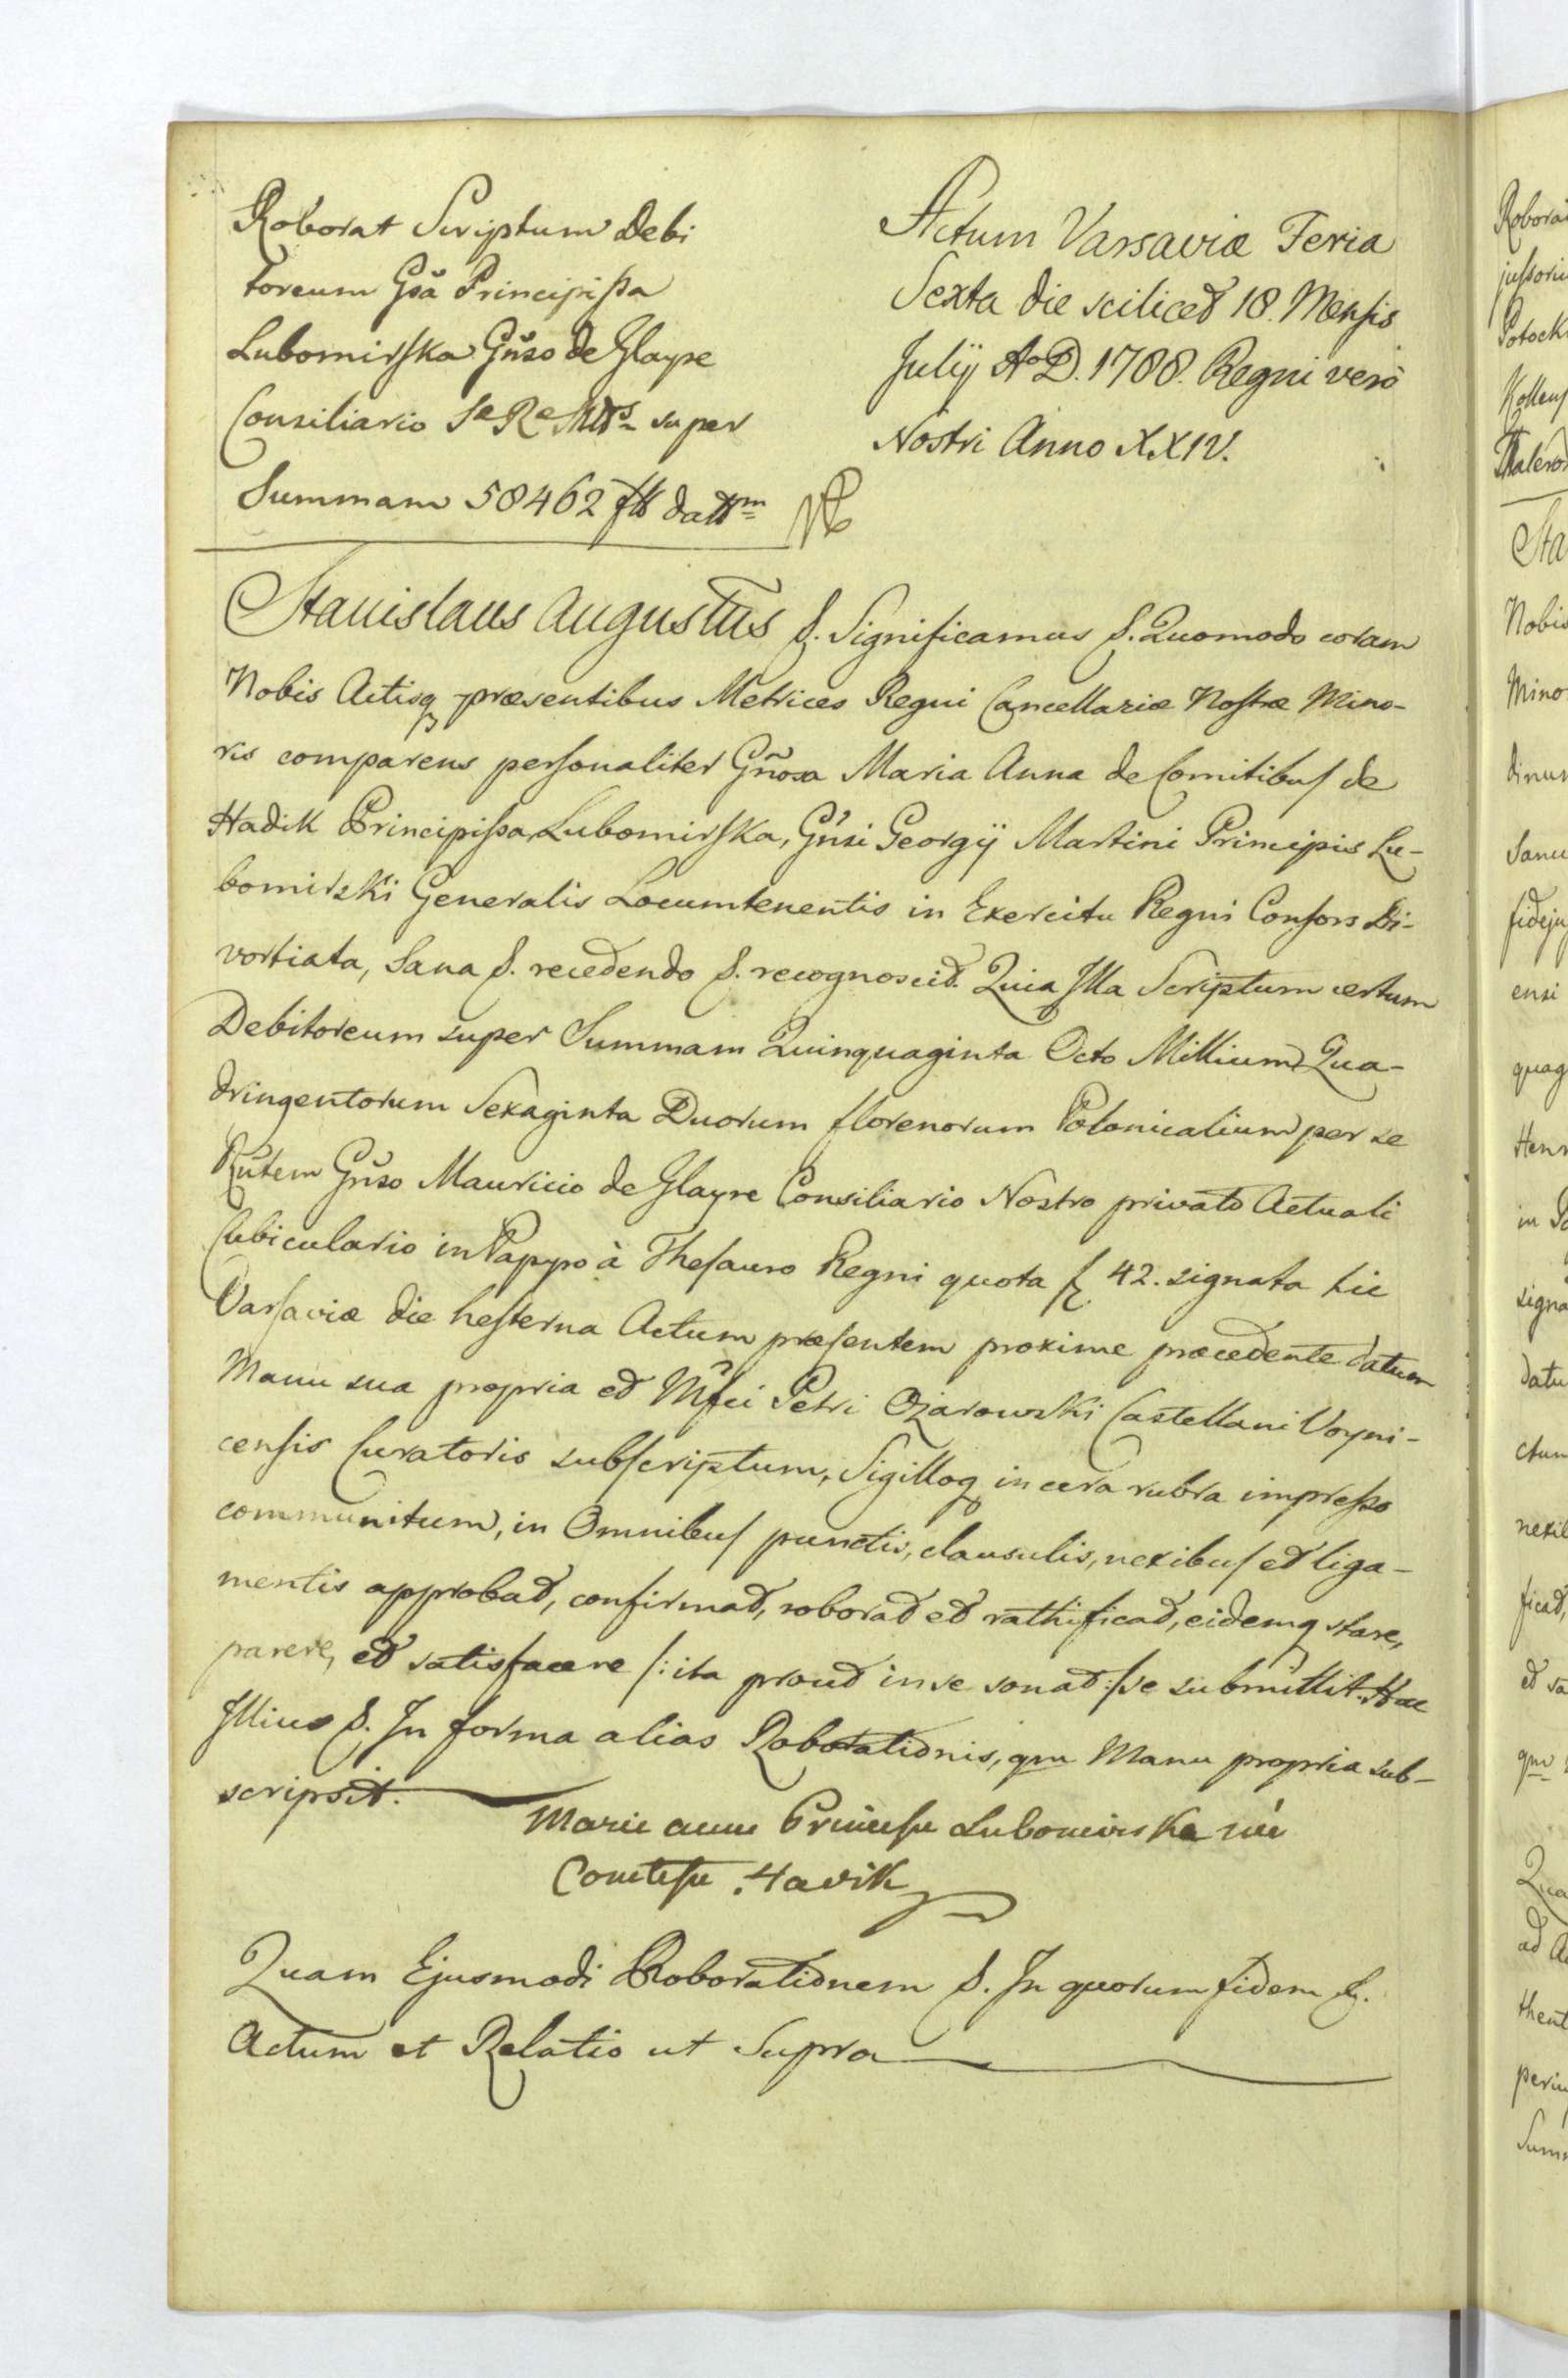 Roborat Scriptum Debi
toreum Gsa Principissa
Lubomirska Gnso de Glayre
Consiliario Sæ Ræ Mttis super
Summam 58462 fl dattm
Actum Varsaviæ Feria
Sexta die scilicet 18. Mensis
Julij Ao D. 1788. Regni verò
Nostri Anno XXIV.
Stanislaus Augustus &. Significamus &. Quomodo coram
Nobis Actisq præsentibus Metrices Regni Cancellariæ Nostræ Mino-
ris comparens personaliter Gnosa Maria Anna de Comitibus de
Hadik Principissa Lubomirska, Gnsi Georgij Martini Principis Lu-
bomirski Generalis Locumtenentis in Exercitu Regni Consors Di-
vortiata, Sana &. recedendo &. recognoscit. Quia Illa Scriptum certum
Debitoreum super Summam Quinquaginta Octo Millium Qua-
dringentorum Sexaginta Duorum florenorum Polonicalium per se
Rntem Gnso Mauricio de Glayre Consiliario Nostro privato Actuali
Cubiculario in Papyro à Thesauro Regni quota fl 42. signata hic
Varsaviæ die hesterna Actum præsentem proxime præcedente datum
Manu sua propria et Mfci Petri Ożarowski Castellani Voyni-
censis Curatoris subscriptum, Sigilloq in cera rubra impresso
communitum, in Omnibus punctis, clausulis, nexibus et liga-
mentis approbat, confirmat, roborat et rathificat, eidemq stare,
parere, et satisfacere /: ita prout in se sonat :/ se submittit. Hac
Illius &. In forma alias Roborationis, qm Manu propria sub-
scripsit.
Marie anne Princesse Lubomirska née
Comtesse Hadik
Quam Ejusmodi Roborationem &. In quorum fidem &.
Actum et Relatio ut Supra